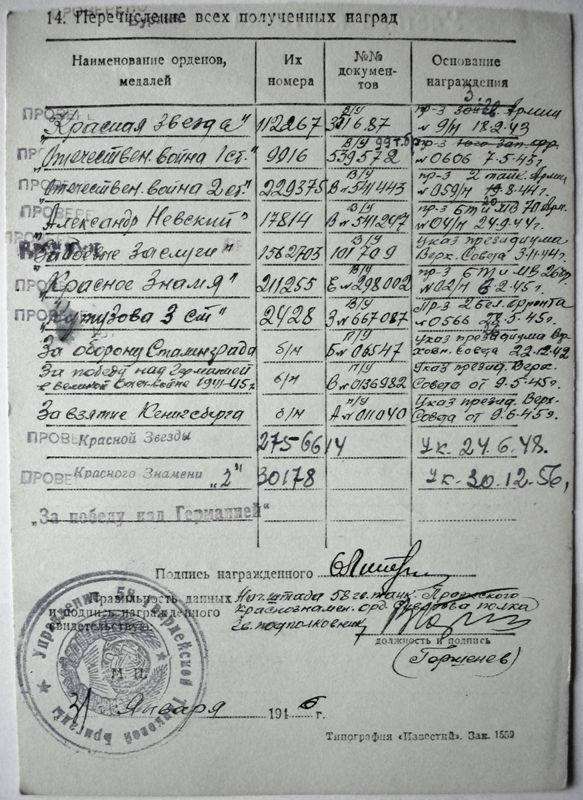 14. Перечисление всех полученных наград
Наименование орденов, медалей
Их номера
№№ документов
Основание награждения
"Красная Звезда" 112267 в/у 321687 пр-з Армии № 9/н 18.2.43
"Отечествен. война 1 ст." 9916 в/у 539572 пр-з № 0606 7-5-45г.
"Отечествен. война 2 ст" 229375 в/у В № 541443 пр-з 2 танк. Армии № 059/н 8.44г.
"Александр Невский" 17814 в/у В № 541247 пр-з БТ и МВ 70 Арм. № 04/н 24.9.44г.
"За боевые заслуги" 1562703 в/у 101709 Указ президиума Верх. Совета 3-11-44г.
"Красное Знамя" 211255 в/у Е № 298002 пр-з БТ и МВ № 02/н 6-2-45г.
"Кутузова 3 ст" 2428 в/у З № 667087 Пр-з 2 бел. фронта № 0566 5-45г.
За оборону Сталинграда б/н п/у Б № 06547 Указ президиума Верховн. Совета 22.12.42
За победу над Германией в великой Отеч. войне 1941-45г. б/н п/у В № 0136982 Указ презид. Верх. Совета от 9.5-45г.
За взятие Кенигсберга б/н п/у А № 011040 Указ презид. Верх. Совета от 9.6-45г.
ПРОВЕ Красной Звезды 2756614 Ук. 24.6.48.
ПРОВЕ Красного Знамени "2" 30178 Ук. 30.12.56,
"За победу над Германией"
Подпись награжденного
Правильность данных и подпись награжденного свидетельствую:
Нач. штаба 58 гв. танк. Пражского
краснознамен. орд. Суворова полка
Гв. подполковник
должность и подпись
(Горженев)
Управление 58 Гвардейской Танковой Бригады
М. П.
21 Января 1946 г.
Типография «Известий». Зак. 1559